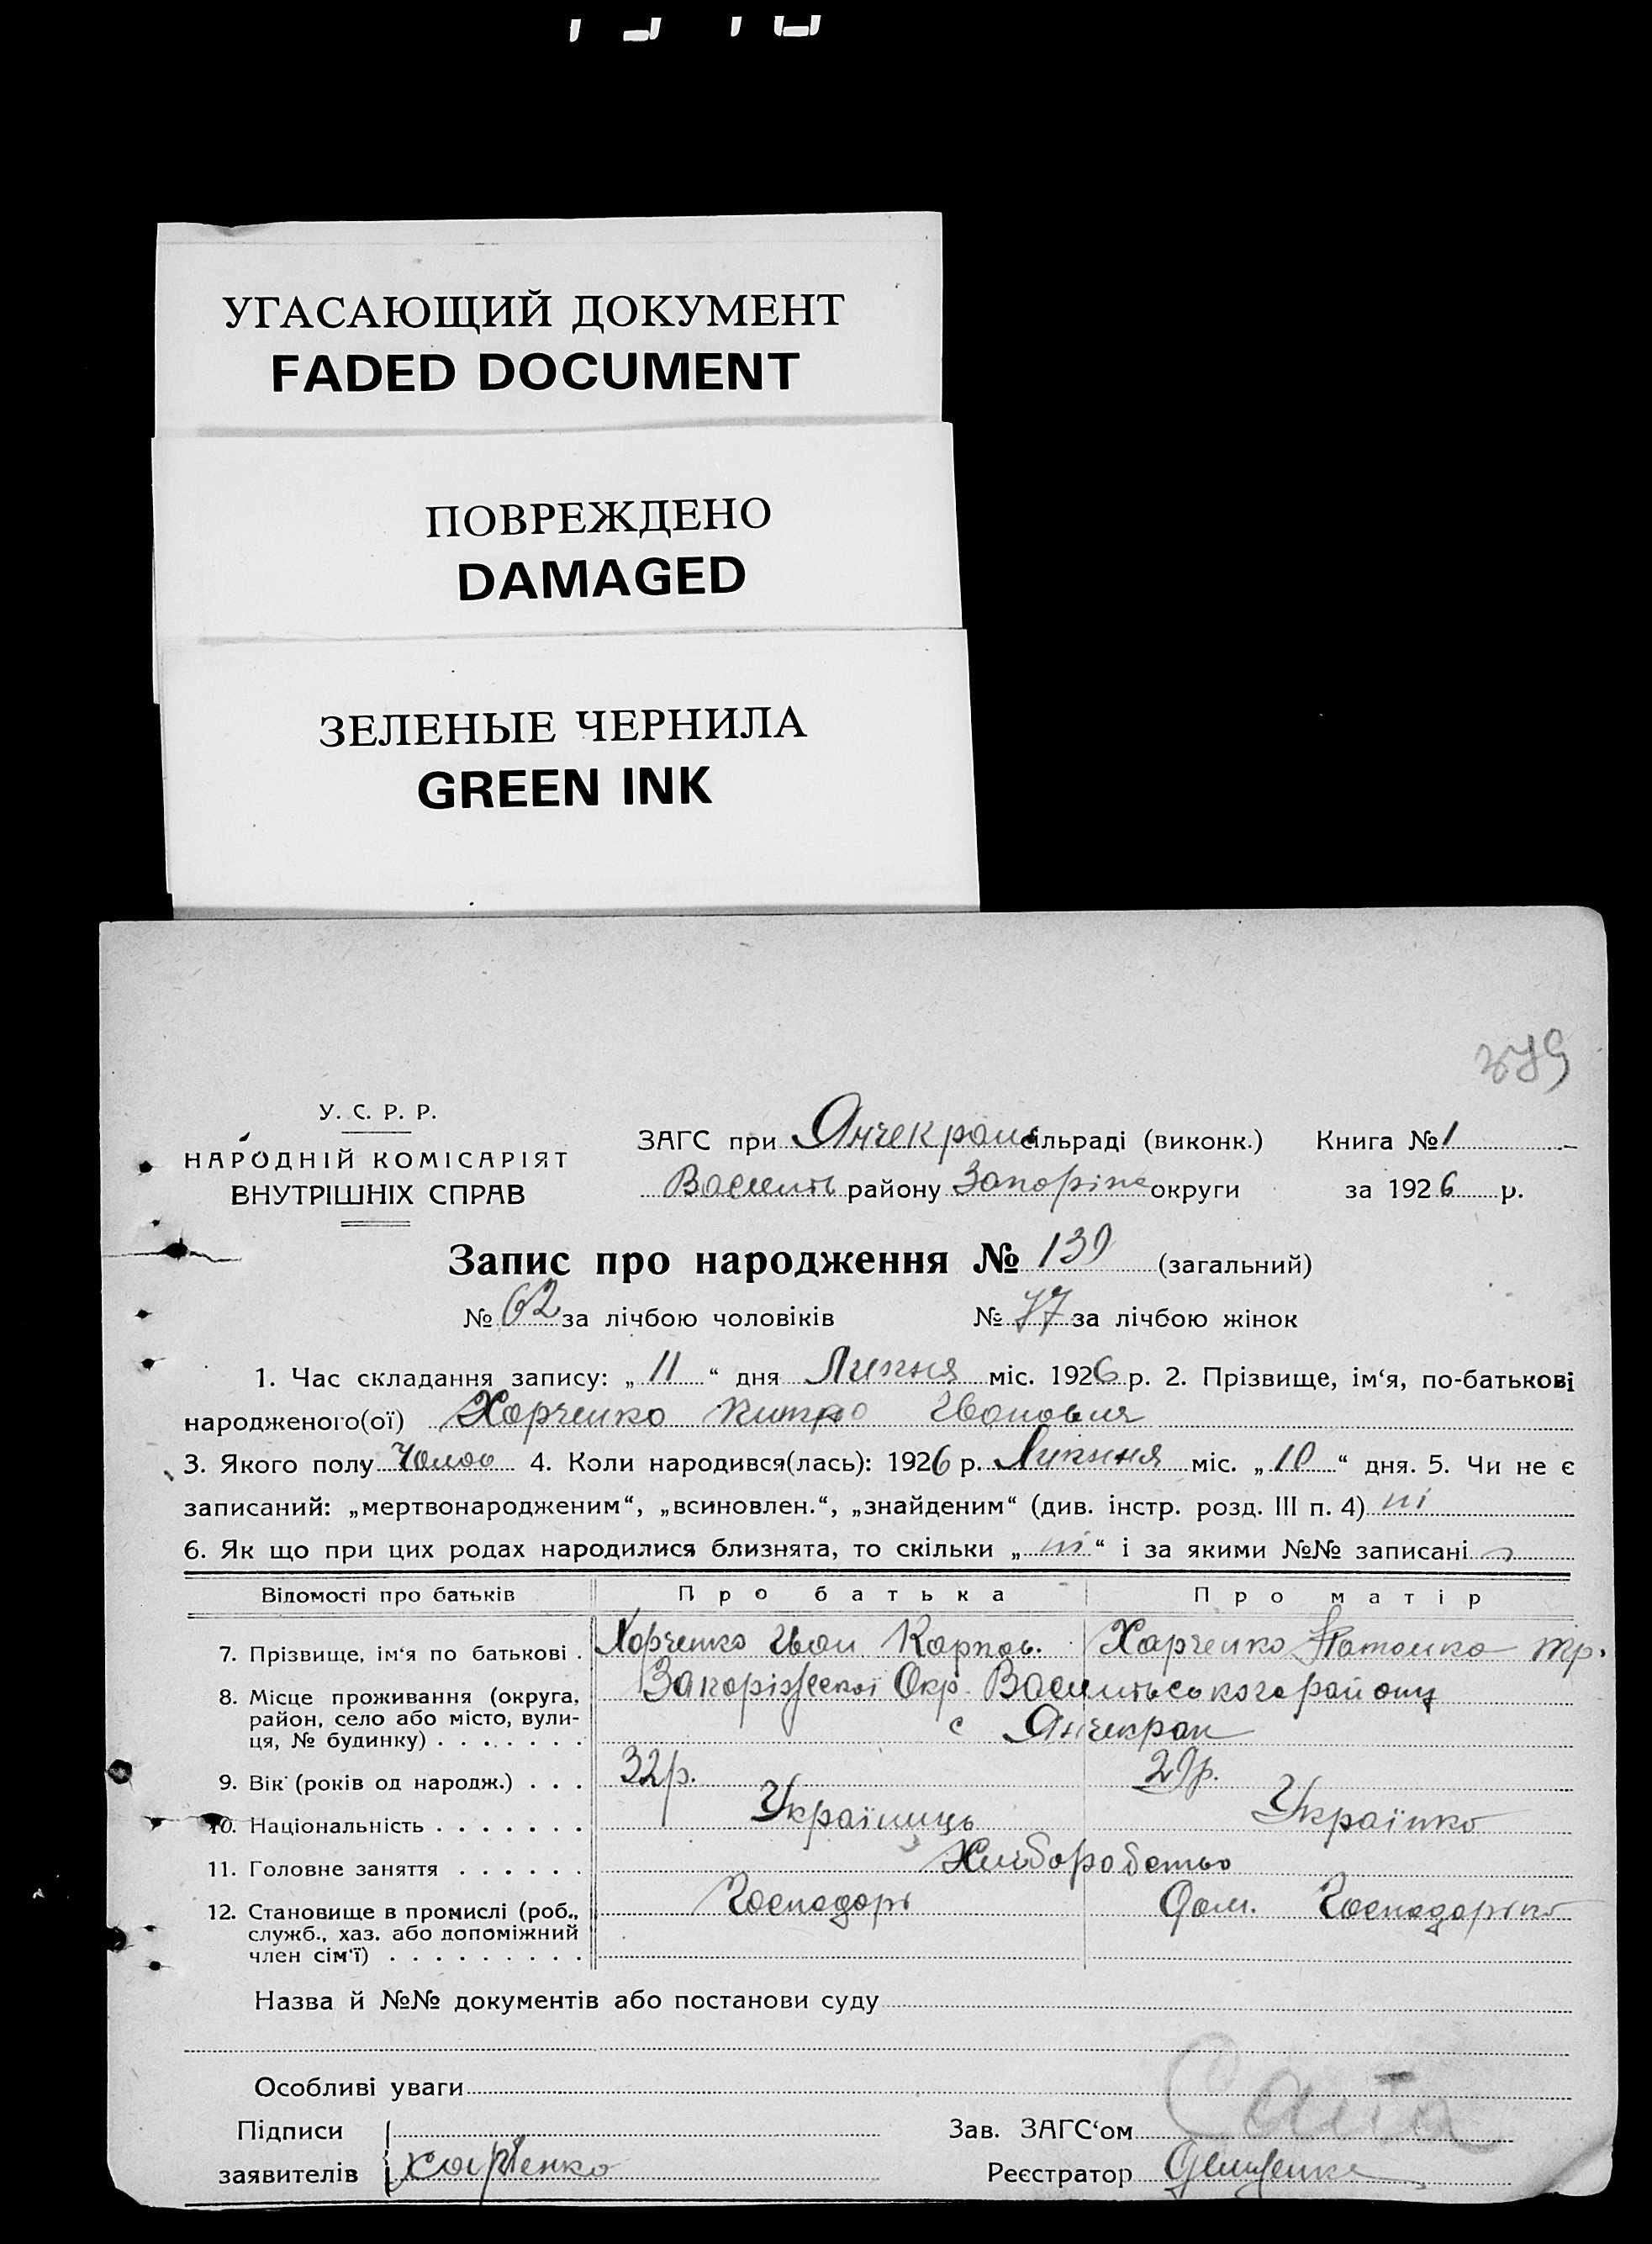 УГАСАЮЩИЙ ДОКУМЕНТ
FADED DOCUMENT
ПОВРЕЖДЕНО
DAMAGED
ЗЕЛЕНЫЕ ЧЕРНИЛА
GREEN INK
У. С. Р. Р.
НАРОДНІЙ КОМІСАРІЯТ
ВНУТРІШНІХ СПРАВ
ЗАГС при Янчекран сільраді (виконк.) Книга № 1
Василь району Запоріж округи за 1926 р.
Запис про народження № 139 (загальний)
№ 62 за лічбою чоловіків № 77 за лічбою жінок
1. Час складання запису: „ 11 “ дня Липня міс. 1926 р. 2. Прізвище, ім‘я, по-батькові
народженого(ої) Харченко Івановия
3. Якого полу Чолов 4. Коли народився(лась): 1926 р. Липня міс. „ 10 “ дня. 5. Чи не є
записаний: „мертвонародженим“, „всиновлен.“, „знайденим“ (див. інстр. розд. III п. 4) ні
6. Як що при цих родах народилися близнята, то скільки „ ні “ і за якими №№ записані
Відомості про батьків Про батька Про матір
7. Прізвище, ім‘я по батькові . Харченко Іван Карпов. Харченко
8. Місце проживання (округа, Запоріжської Окр. Васильського району
район, село або місто, вули- с Янчекрак
ця, № будинку) . . . . . . .
9. Вік (років од народж.) . . . 32 р. 29 р.
10. Національність . . . . . . . Українець Українка
11. Головне заняття . . . . . . Хліборобство
12. Становище в промислі (роб., Господарь Дом. Господарька
служб., хаз. або допоміжний
член сім‘ї) . . . . . . . . .
Назва й №№ документів або постанови суду
Особливі уваги
Підписи Зав. ЗАГС‘ом
заявителів Харченко Реєстратор